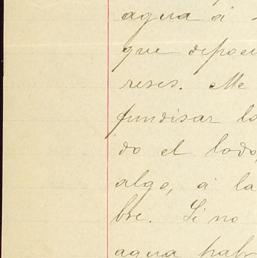 agua á
que depos
reses. Me
fundisar lo
do el lodo,
algo, á la
bre. Si no
agua hab